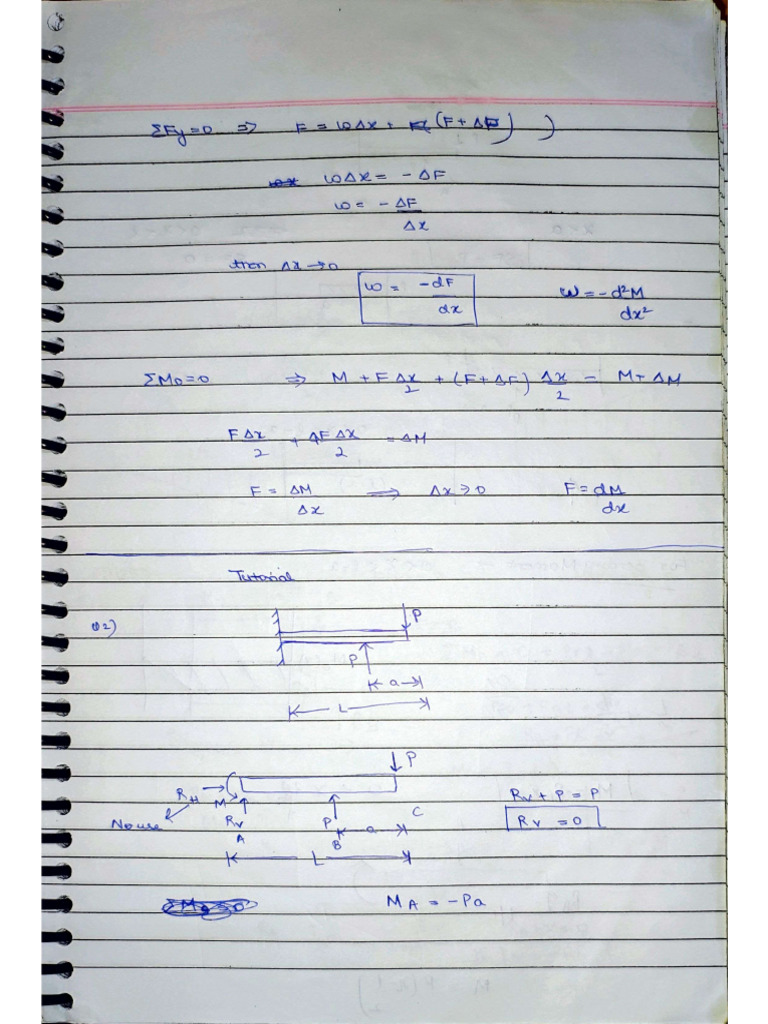 ΣFy=0 ⇒ F = ωΔx + (F+ΔF) )
ωΔx = -ΔF
ω = -ΔF/Δx
then Δx→0
ω = -dF/dx
ω = -d²M/dx²
ΣM0=0 ⇒ M + F Δx/2 + (F+ΔF) Δx/2 = M+ΔM
FΔx/2 + ΔFΔx/2 = ΔM
F = ΔM/Δx ⇒ Δx→0 F = dM/dx
Tutorial
Q2)
P
P
a
L
P
RH
M
No use
RV
A
P
B
a
C
L
RV + P = P
RV = 0
MA = -Pa